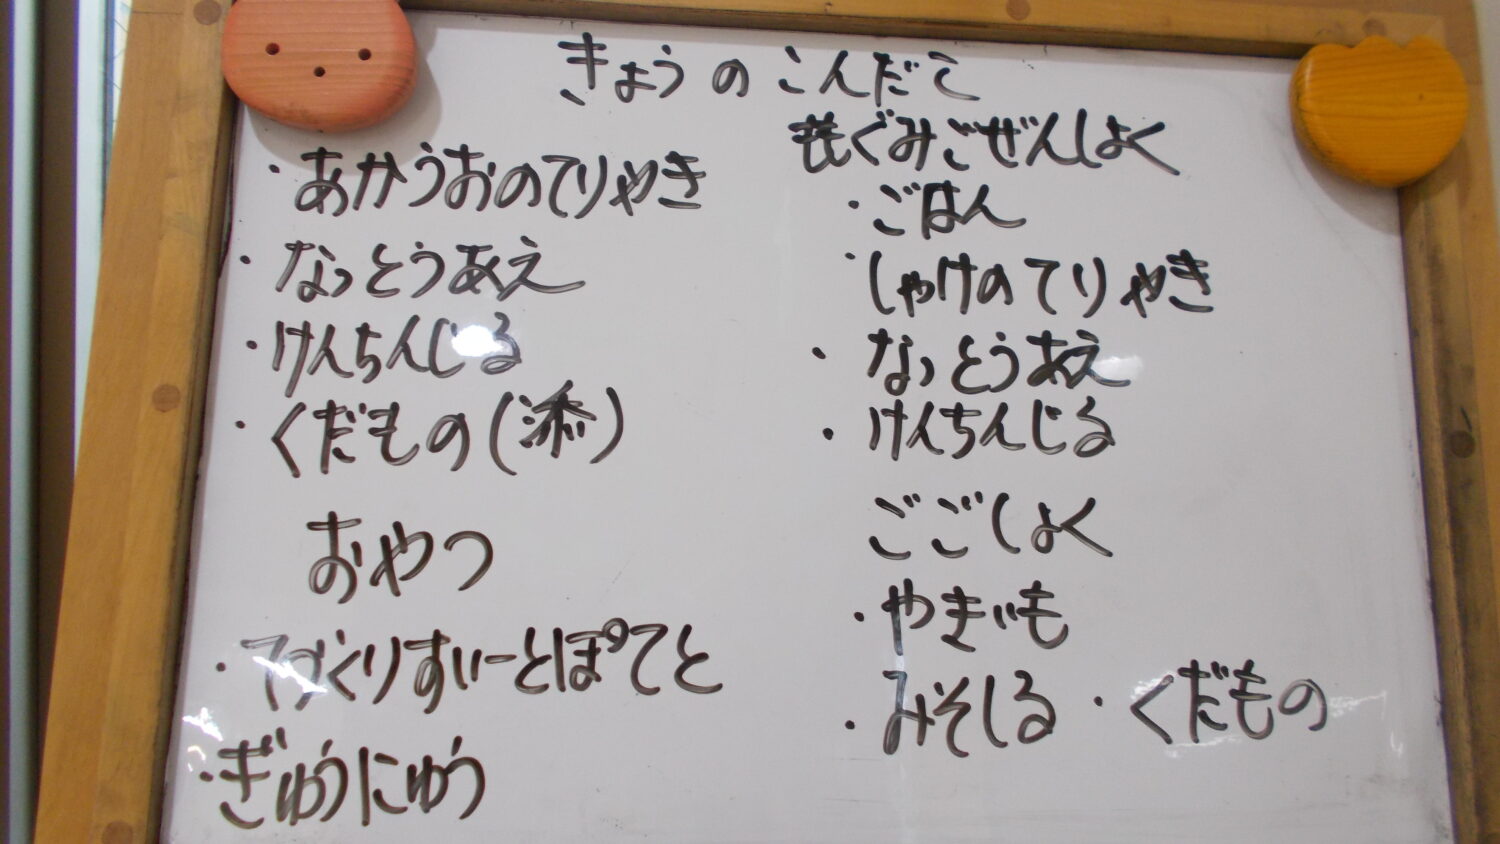 きょうのこんだて
・あかうおのてりやき
・なっとうあえ
・けんちんじる
・くだもの(添)
おやつ
・てづくりすいーとぽてと
・ぎゅうにゅう
ももぐみごぜんしょく
・ごはん
・しゃけのてりやき
・なっとうあえ
・けんちんじる
ごごしょく
・やきいも
・みそしる・くだもの